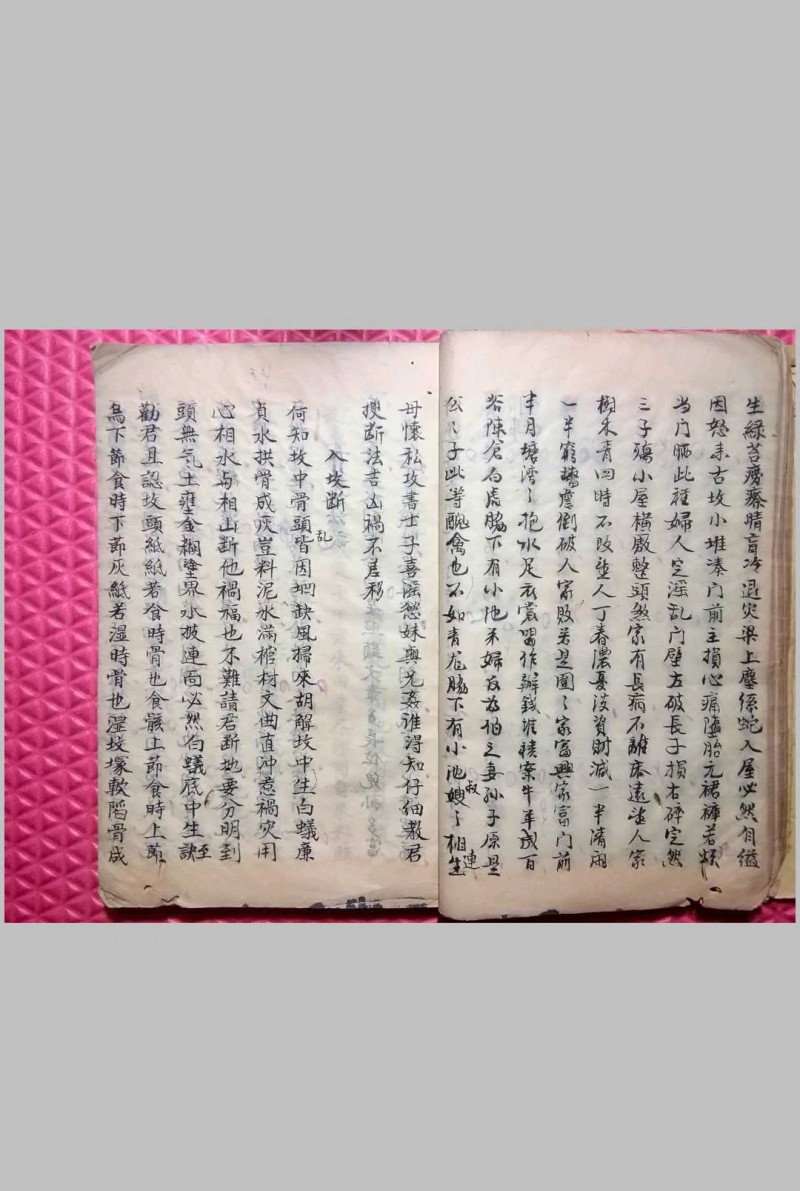 生綠苔癆瘵晴盲冷退灾梁上塵絲蛇入屋必然自縊
因怒耒古坟小堆湊门前主損心痛墮胎元裙褲若
当门晒此種婦人定淫乱门壁左破長子損右碎定然
三子殤小屋橫廠整頭煞家有長病不離床遠望人家
樹木青四時不敗望人丁春濃夏淡資財減一半清雨
一半窮倒破人家敗若是團〻家富興家富门前
半月塘湾〻抱水足衣裳畄作辦錢堆積案牛羊成百
谷陳倉白虎脇下有小池弟婦反为伯之妻孫子原是
公〻子此等醜禽也不如青龙脇下有小池嫂〻叔相連生
母懷私攻書士子喜淫慾妹與兄姦誰得知仔細教君
搜断法吉凶禍不差移
入坟断
何知坟中骨頭乱皆因地缺風掃來胡解坟中生白蟻廉
貞水拱骨成灰豈料泥水滿棺材文曲直沖惹禍灾用
心相水与相山断他禍福也不難請君断地要分明到
頭無气土壅金糊塗界水披連面必然白蟻底中生訣至
勸君且認坟頭紙紙若食時骨也食骸上節食時上節
烏下節食時下節灰紙若湿時骨也湿坟塚軟陷骨成